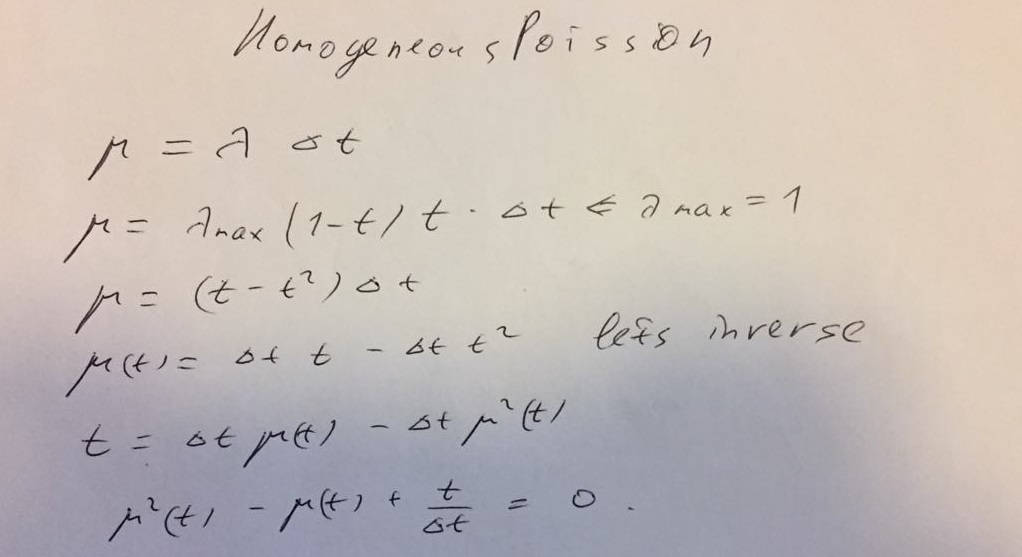 Homogeneous Poission
μ = λ Δt
μ = λmax (1-t) t · Δt ⇐ λmax = 1
μ = (t - t²) Δt
μ(t) = Δt t - Δt t² lets inverse
t = Δt μ(t) - Δt μ²(t)
μ²(t) - μ(t) + t/Δt = 0.